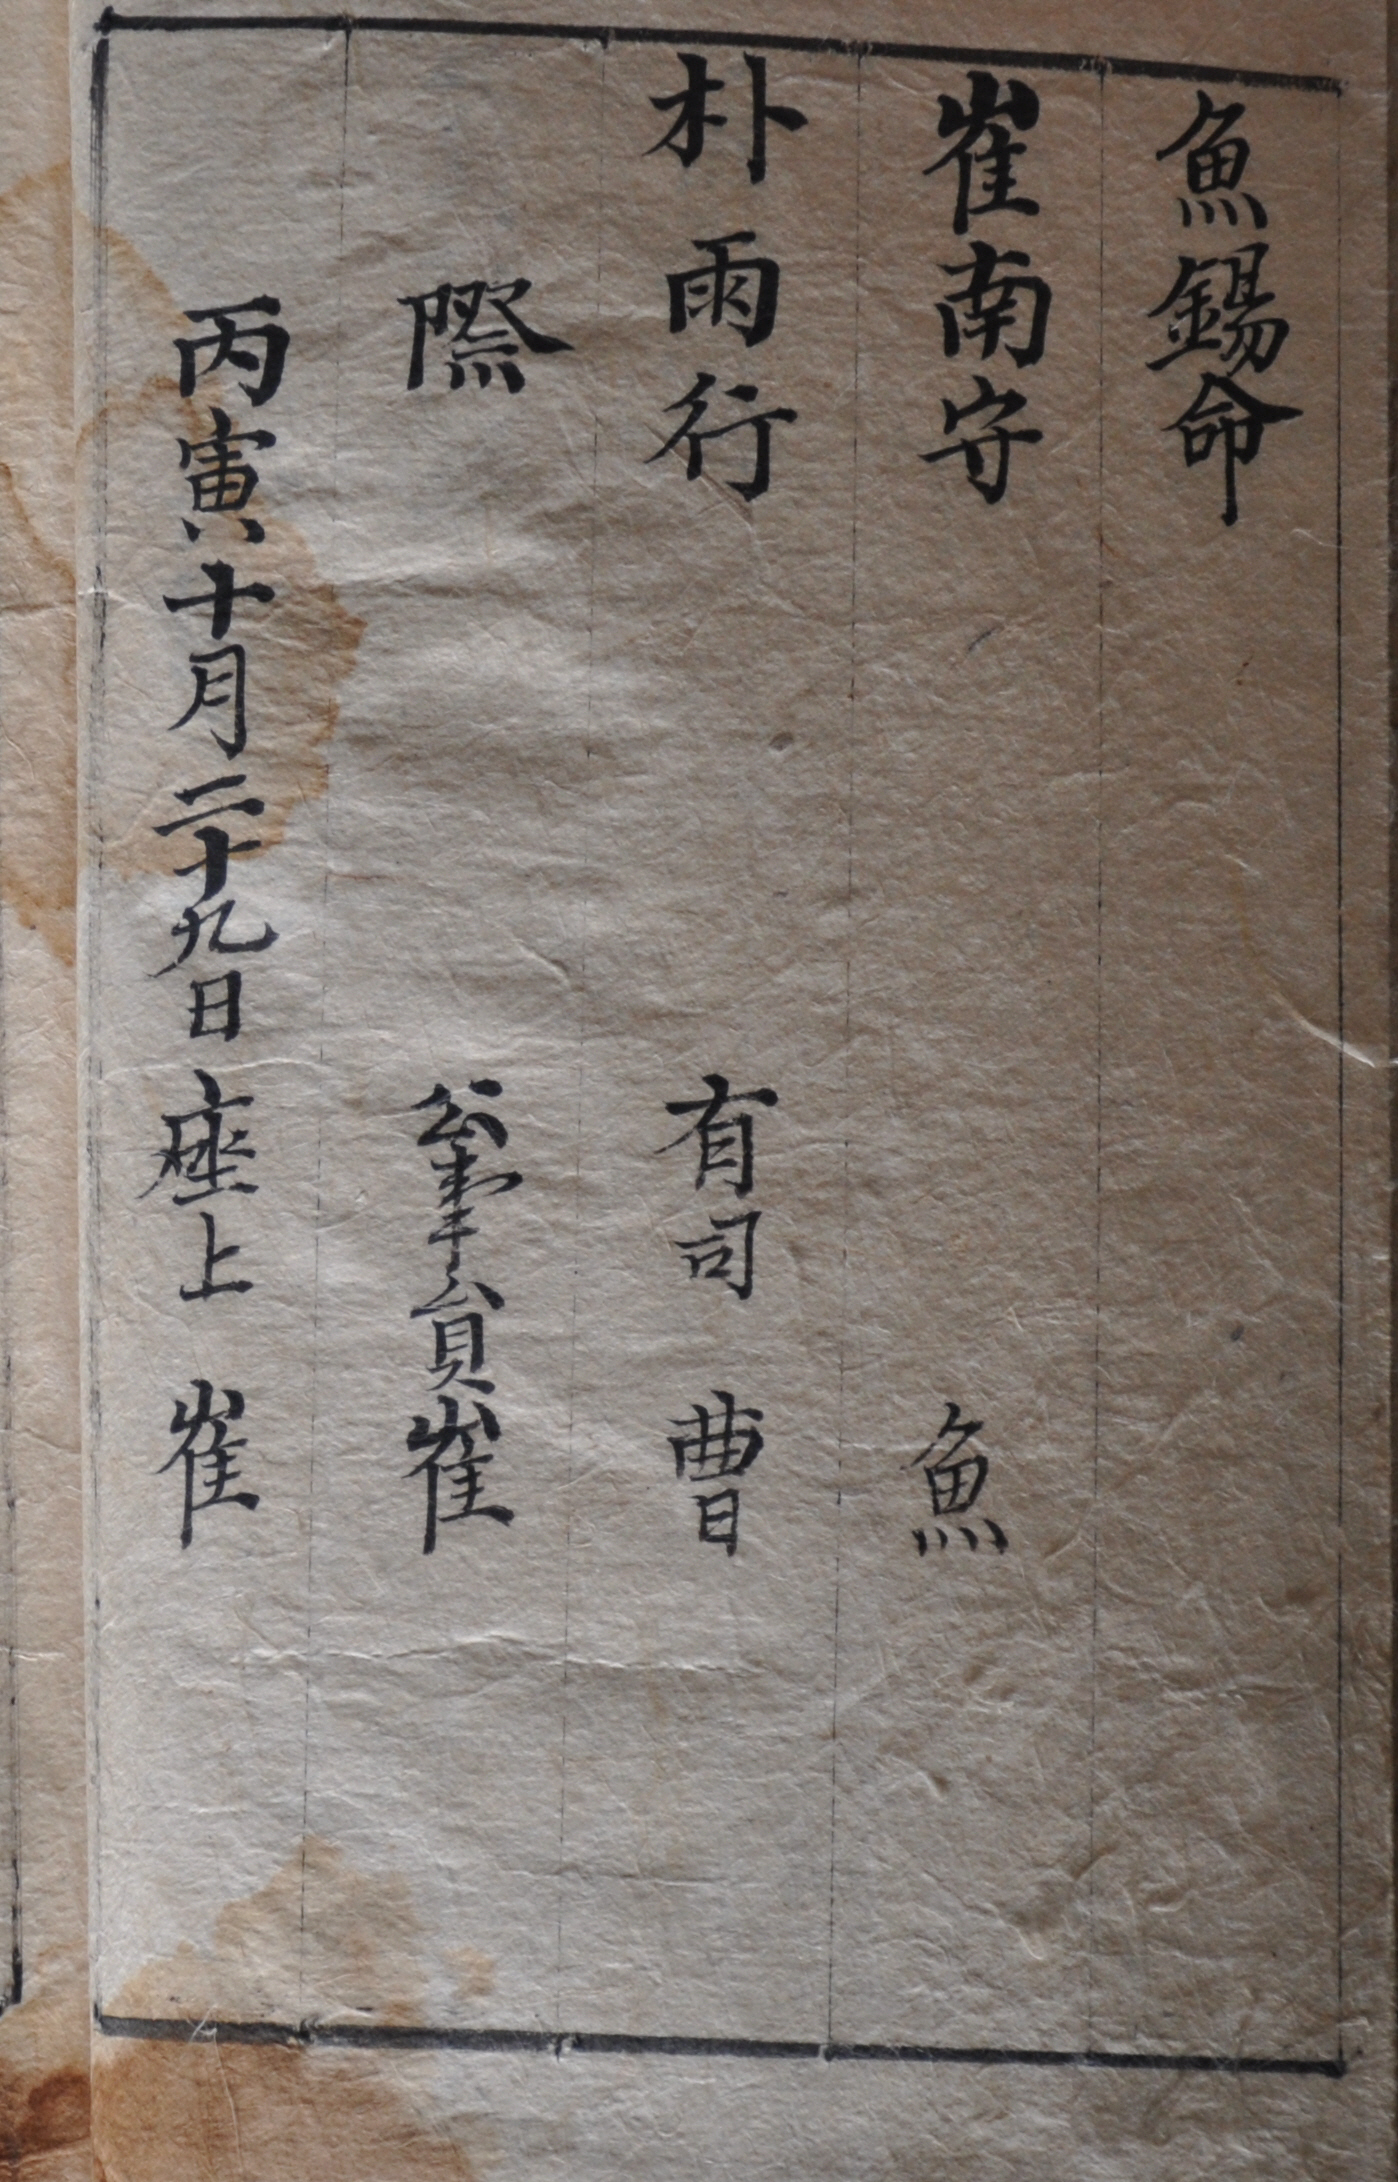 魚錫命
崔南守
魚
朴雨行
有司 曺
際
公事員 崔
丙寅十月二十九日 座上 崔